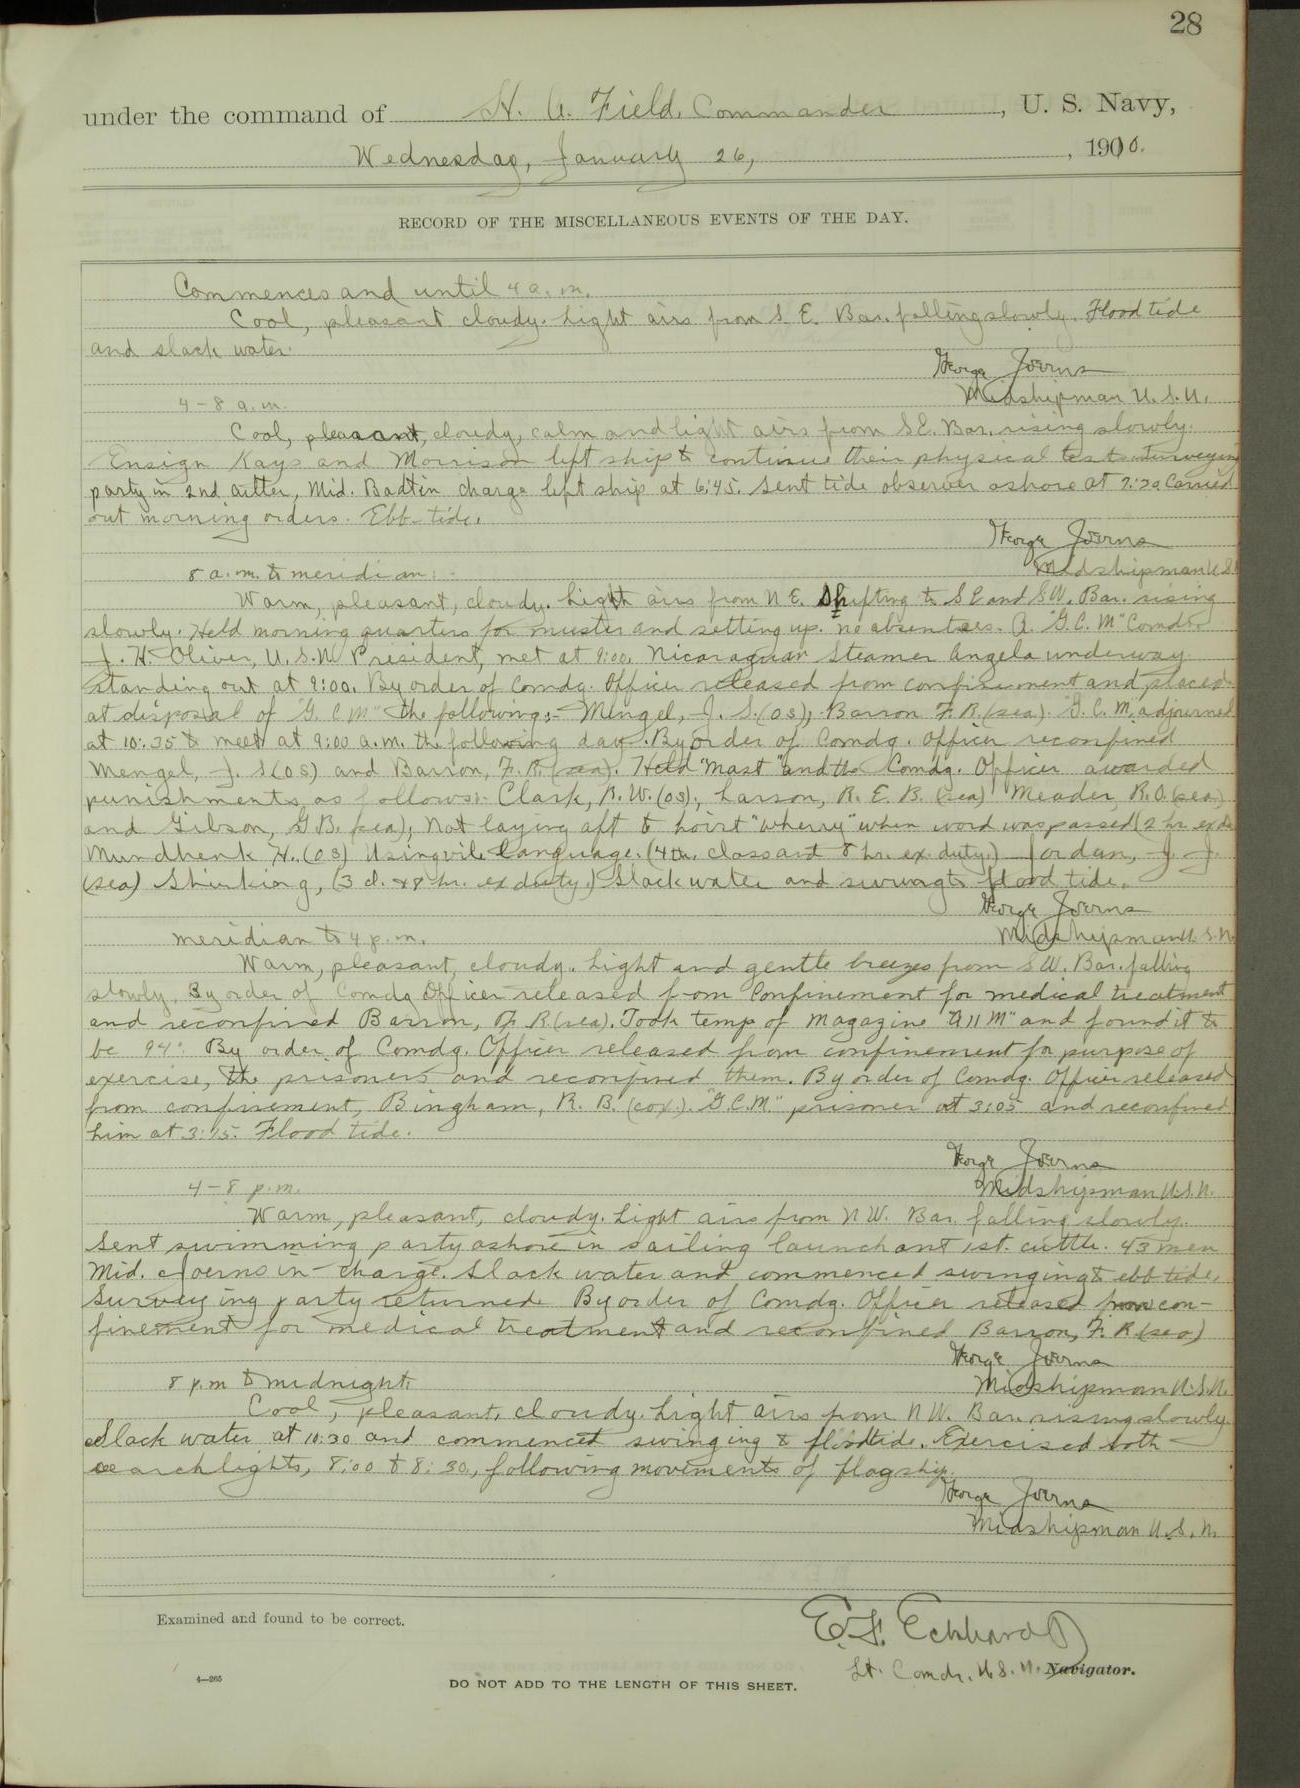 28
under the command of H. A. Field, Commander, U. S. Navy,
Wednesday, January 26, 1910.
RECORD OF THE MISCELLANEOUS EVENTS OF THE DAY.
Commences and until 4 a. m.
Cool, pleasant cloudy. Light airs from S. E. Bar. falling slowly. Flood tide
and slack water.
George Joerns
Midshipman U. S. N.
4-8 a. m.
Cool, pleasant, cloudy, calm and light airs from S.E. Bar. rising slowly.
Ensign Kays and Morrison left ship to continue their physical tests. Surveying
party in 2nd cutter, Mid. Badt in charge left ship at 6:45. Sent tide observer ashore at 7:20 Carried
out morning orders. Ebb tide.
George Joerns
Midshipman U.S.
8 a. m. to meridian.
Warm, pleasant, cloudy. Light airs from N E. Shifting to S E and S W. Bar. rising
slowly. Held morning quarters for muster and setting up. no absentees. A "G. C. M" Comdr.
J. H. Oliver, U. S. N. President, met at 9:00. Nicaraguan Steamer Angela underway
standing out at 9:00. By order of Comdg. Officer released from confinement and placed
at disposal of "G. C M" the following:- Mengel, J. S. (O S), Barron F. R. (sea). G. C. M. adjourned
at 10:35 to meet at 9:00 a. m. the following day. By order of Comdg. Officer reconfined
Mengel, J. S (O S) and Barron, F. R. (sea). Held "mast" and the Comdg. Officer awarded
punishments as follows:- Clark, R. W. (OS), Larson, R. E. B. (sea) Meader, R. O. (sea)
and Gibson, G. B. (sea), Not laying aft to hoist "wherry" when word was passed (2 hr. ex du
Mundhenk H. (O S) Using vile language. (4th. class and 8 hr. ex. duty.) Jordan, J. J.
(sea) Shirking, (3 d. & 8 hr. ex duty.) Slack water and swung to flood tide.
George Joerns
Midshipman U. S. N.
meridian to 4 p. m.
Warm, pleasant, cloudy. Light and gentle breezes from S W. Bar. falling
slowly. By order of Comdg Officer released from Confinement for medical treatment
and reconfined Barron, F. R. (sea). Took temp of Magazine "A 11 M" and found it to
be 94°. By order of Comdg. Officer released from confinement for purpose of
exercise, the prisoners and reconfined them. By order of Comdg. Officer released
from confinement, Bingham, R. B. (cox.). "G. C. M." prisoner at 3:05 and reconfined
him at 3:15. Flood tide.
George Joerns
Midshipman U. S. N.
4-8 p. m.
Warm, pleasant, cloudy. Light airs from N W. Bar. falling slowly.
Sent swimming party ashore in sailing launch and 1st. cutter. 43 men
Mid. Joerns in charge. Slack water and commenced swinging to ebb tide.
Surveying party returned. By order of Comdg. Officer released from con-
finement for medical treatment and reconfined Barron, F. R. (sea)
George Joerns
Midshipman U. S. N.
8 p. m to midnight.
Cool, pleasant, cloudy. Light airs from N W. Bar. rising slowly
Slack water at 10:30 and commenced swinging to flood tide. Exercised both
searchlights, 8:00 to 8:30, following movements of flagship.
George Joerns
Midshipman U. S. N.
Examined and found to be correct.
E. L. Eckhardt
Lt. Comdr. U. S. N. Navigator.
4—265
DO NOT ADD TO THE LENGTH OF THIS SHEET.